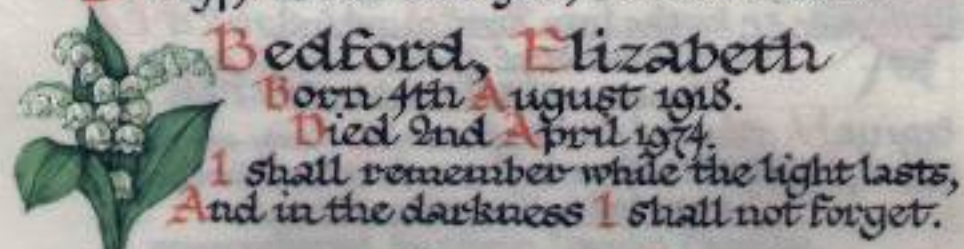 Bedford, Elizabeth
Born 4th August 1918.
Died 2nd April 1974.
I shall remember while the light lasts,
And in the darkness I shall not forget.